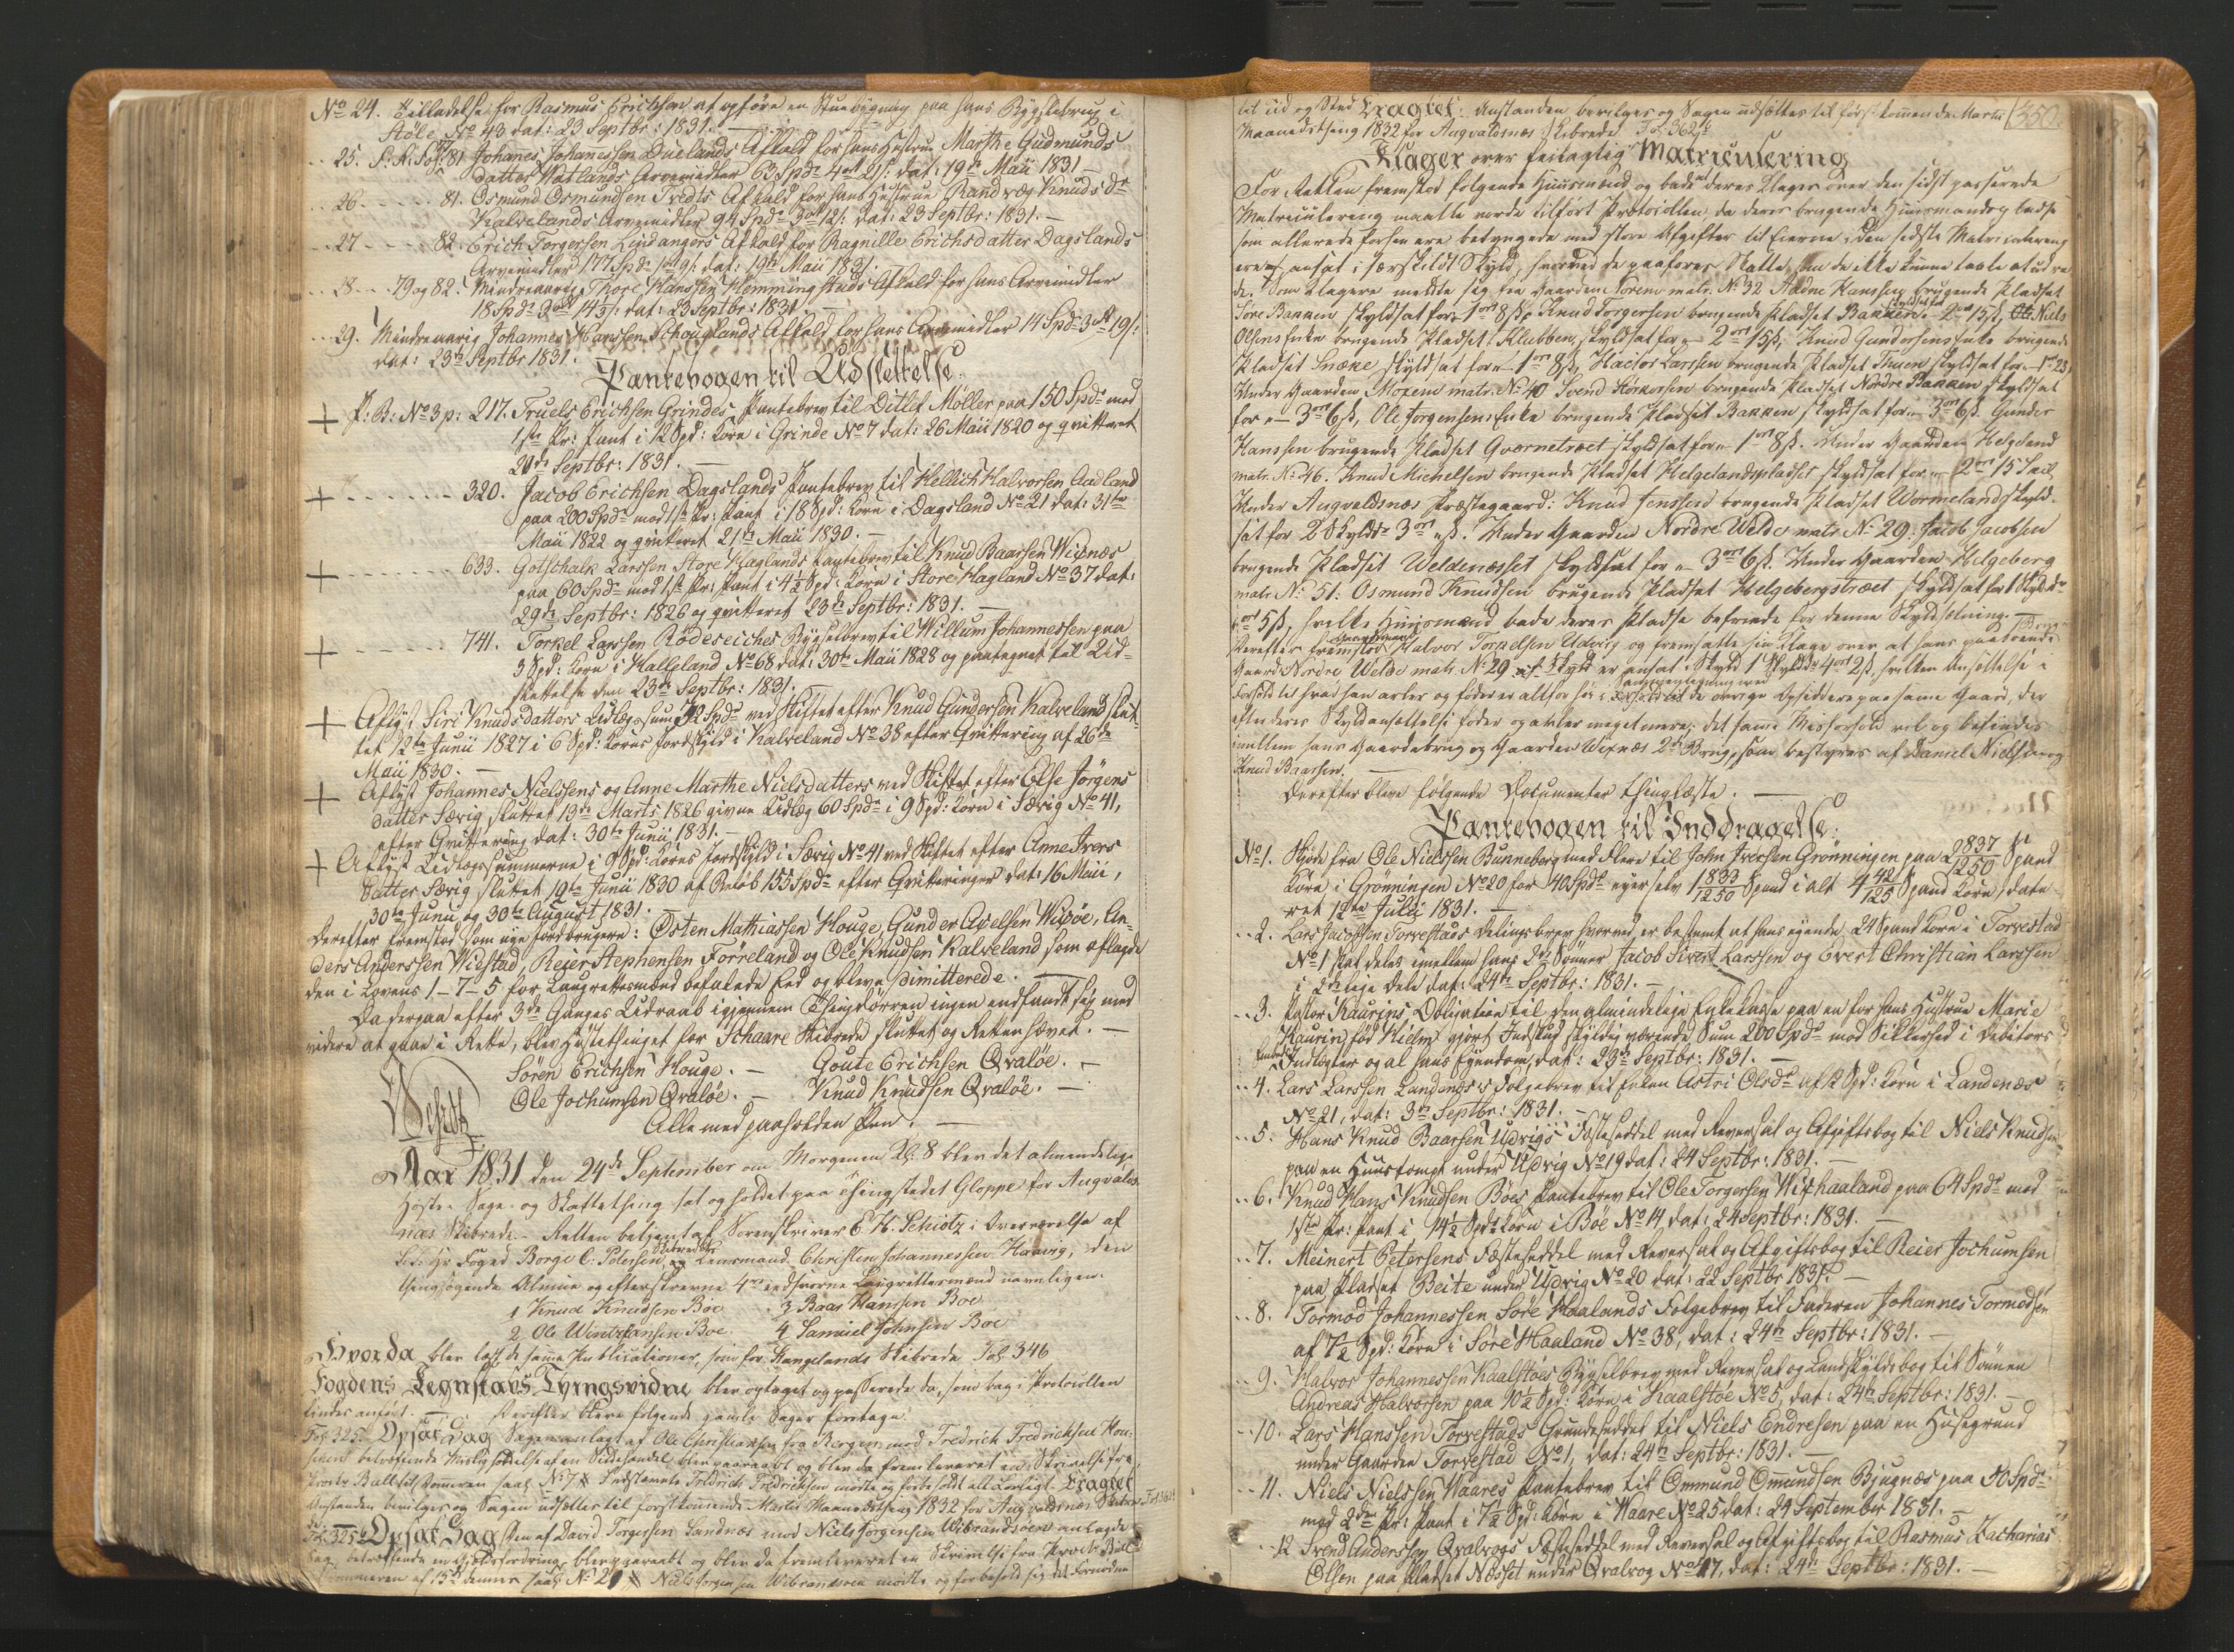 No 24. Tilladelse for Rasmus Erichsen at opføre en Stuebygning paa hans Bygslebrug i
Støle No 43 dat: 23 Septbr: 1831. —
25. S. A. Pag: 81 Johanes Johannessen Duelands Afkald for hans Hustrue Marthe Gudmunds
datter Watlands Arvemidler 63 Spdr 4 ort 21 s: dat: 19de Maii 1831 —
26 - - - - 81. Osmund Osmundsen Tvedts Afkald for hans Hustrue Randveg Knuds dr
Kalvelands Arvemidler 94 Spdr 3 ort 12 s: dat: 23 Septbr: 1831. —
27 - - - - 82 Erich Torgersen Liindangers Afkald for Ragnille Erichsdatter Dagslands
Arvemidler 177 Spdr 1 ort 9 s: dat: 19de Maii 1831.
28 - - 79 og 82. Mindreaarig Thore Hanssen Hemmingstads Afkald for hans Arvemidler
18 Spdr 3 ort 14 s: dat: 23 Septbr: 1831 —
29. Mindreaarig Johannes Hanssen Schouglands Afkald for hans Arvemidler 14 Spdr 3 ort 19 s:
dat: 23de Septbr 1831.
Pantebogen til Udslettelse.
+ P: B: No 3 p: 217. Truels Erichsen Grindes Pantebrev til Ditlef Møller paa 150 Spdr mod
1ste Pr: Pant i 12 Spd: Korn i Grinde No 7 dat: 26 Maii 1820 og qvitteret
20de Septbr: 1831. —
+ - - - - - 320. Jacob Erichsen Dagslands Pantebrev til Kellich Halvorsen Aadland
paa 200 Spdr mod 1ste Pr: Pant i 18 Spd: Korn i Dagsland No 21 dat: 31te
Maii 1822 og qvitteret 21de Maii 1830. —
+ - - - - - 633. Gotschalk Larssen Store Haglands Pantebrev til Knud Baarsen Wixnæs
paa 60 Spdr mod 1ste Pr: Pant i 4½ Spd: Korn i Store Hagland No 37 dat:
29de Septbr: 1826 og qvitteret 23de Septbr: 1831. —
+ - - - - - 741. Torkel Larssen Rødeseiches Bygselbrev til Willum Johannessen paa
3 Spd: Korn i Halleland No 68 dat: 30te Maii 1828 og paategnet til Ud-
slettelse den 23de Septbr: 1831. —
+ Aflyst Siri Knudsdatters Udlægssum 12 Spdr ved Skiftet efter Knud Gundersen Kalveland slut-
tet 12te Junii 1827 i 6 Spd: Korns Jordskyld i Kalveland No 38 efter Qvittering af 26de
Maii 1830. —
+ Aflyst Johannes Nielssens og Anne Marthe Nielsdatters ved Skiftet efter Else Jørgens
datter Sævig sluttet 13de Marts 1826 givne Udlæg 60 Spdr i 9 Spd: Korn i Sævig No 41,
efter Qvittering dat: 30te Junii 1831. —
+ Aflyst Udlægssummerne i 9 Spd: Korns Jordskyld i Sævig No 41 ved Skiftet efter Anne Ivers
datter Sævig sluttet 19de Junii 1830 af Beløb 155 Spdr efter Qvitteringer dat: 16 Maii,
30te Junii og 30te August 1831.
Derefter fremstod som nye Jordbrugere: Østen Mathiassen Houge, Gunder Axelsen Wibøe, An-
ders Anderssen Wiestad, Reier Stephensen Førreland og Ole Knudsen Kalveland som aflagde
den i Lovens 1-7-5 for Laugrettesmænd befalede Eed og bleve dimitterede. —
Da derpaa efter 3de Ganges Udraab igjennem Thingdørren ingen indfandt sig med
videre at gaae i Rette, blev Høstetinget for Schaare Skibrede sluttet og Retten hævet. —
Søren Erichsen Houge. — Goute Erichsen Qvaløe. —
Ole Jochumsen Qvaløe. — Knud Knudsen Qvaløe. —
Alle med paaholden Pen. —
Schiøtz
Aar 1831 den 24de September om Morgenen Kl: 8 blev det almindelige
Høste- Sage- og Skattething sat og holdet paa Thingstedet Gloppe for Augvalds-
næs Skibrede. Retten betjent af Sorenskriver E. H. Schiøtz i Overværelse af
Hr Foged Borge C: Petersen, Skibredets Lensmand Christen Johannessen Haavig, den
thingsøgende Almue og efterskrevne 4re eedsvorne Laugrettesmænd navnligen.
1 Knud Knudsen Böe 3 Baar Hansen Boe
2 Ole Wintrhansen Boe 4 Samuel Johnsen Boe
Hvorda blev læst de samme Publicationer, som for Stangelands Skibrede Fol 346
Fogdens Regnskabs Tingsvidne blev optaget og passerede da, som bag i Protocollen
findes anført. — Derefter bleve følgende gamle Sager foretagne.
Fol. 325. Opsat Sag Sagen anlagt af Ole Christiansen fra Bergen mod Fredrich Fredrichsen Hou-
betræffende blev paaraabt og blev da fremleveret en Skrivelse fra
No 7 Indstevnte Fredrich Fredrichsen mødte og forbeholdt alt Lovligt. Eragtet
Anstanden bevilges og Sagen udsættes til førstkommende Martii Maanedsthing 1832 for Augvaldsnæs Skibrede
Fol. 325 Opsat Sag Den af David Torgersen Sandnæs mod Niels Jørgensen Wibrandsøen anlagde
Sag betræffende en Gjældsfordring blev paaraabt og blev da fremleveret en Skrivelse fra Procr Ball
af 15de dennes No 2 Niels Jorgensen Wibrandsoen mødte og forbeholdt sig det fornødne
til Tid og Sted Eragtet: Anstanden bevilges og Sagen udsættes til først kommende Martii 350.
Maanedsthing 1832 for Augvaldsnæs Skibrede Fol. 362
Klager over feilagtig Matriculering
For Retten fremstod følgende Huusmænd og bade at deres Klager over den sidst passerede
Matriculering maatte vorde tilført Protocollen, da deres brugende Huusmandspladse
som allerede forhen ere betyngede med store Afgifter til Eierne i den sidste Matriculering
ere ansat i særskildt Skyld, hvorved de paaføres Skatter, som de ikke kunne taale at udre
de. Som Klagere meldte sig fra Gaarden Sørem matr: No 32 Aadne Hanssen brugende Pladset
Søre Bakken skyldsat for - 1 ort 8 ß, Knud Torgersen brugende Pladset Bakken skyldsat for 2 ort 15 ß, Niels
Olsens Enke brugende Pladset Klubben, skyldsat for - 2 ort 15 ß, Knud Gundersens Enke brugende
Pladset Snæke skyldsat for - 1 ort 8 ß, Hactor Larssen brugende Pladset Thuen skyldsat for - 1 ort 23 ß
Under Gaarden Moxeim matr: No 40 Svend Størkersen brugende Pladset Nordre Bakken skyldsat
for - 3 ort 6 ß, Ole Jorgensens Enke brugende Pladset Bakken skyldsat for - 3 ort 6 ß. Gunder
Hanssen brugende Pladset Qvernetræet skyldsat for - 1 ort 8 ß. Under Gaarden Helgeland
matr. No 46. Knud Michelsen brugende Pladset Helgelandspladset skyldsat for - 2 ort 15 Skil
Under Augvaldsnæs Præstegaard: Knud Jenssen brugende Pladset Wormeland skyld-
sat for 2 Skyldr 3 ort " ß. Under Gaarden Nordre Welde matr: No 29. Jacob Jacobsen
brugende Pladset Weldenæsset skyldsat for - 3 ort 6 ß. Under Gaarden Helgeberg
matr No 51. Osmund Knudsen brugende Pladset Helgebergstræet skyldsat for 1 Skyldr
ort 5 ß, hvilke Huusmænd bade deres Pladse befriede for denne Skyldsetning. —
Derefter fremstod Gaardmand Halvor Torkelsen Udvig og fremsatte sin Klage over at hans paaboende
Gaard Nordre Welde matr: No 29 er ansat i Skyld 1 Skyldr 4 ort 2 ß, hvilken Ansættelse i
Forhold til hvad han avler og føder er altfor høi i Sammenligning med de øvrige Opsiddere paa samme Gaard, der
efter deres Skyldansættelse føder og avler meget mere; det samme Misforhold vel og befindes
imellem hans Gaardebrug og Gaarden Wixnæs 2det Brug, som bestyres af Daniel Nielsen og
Knud Baarsen. —
Derefter bleve følgende Documenter thinglæste. —
Pantebogen til Inddragelse.
No 1. Skjøde fra Ole Nielssen Bunneberg med flere til John Iversen Grønningen paa 2 2837/1250 Spand
Korn i Grønningen No 20 for 40 Spdr eyer selv 1 833/1250 Spand i alt 4 42/125 Spand Korn, date-
ret 12te Julii 1831. —
2. Lars Jacobsen Torvestads Delingsbrev hvorved er bestemt at hans eyende 24 Spand Korn i Torvestad
No 1 skal deles imellem hans 2de Sønner Jacob Sivert Larssen og Evert Christian Larssen
i 2de lige Dele dat: 24de Septbr: 1831. —
3. Pastor Kaurins Obligation til den almindelige Enkekasse paa en for hans Hustrue Marie
Kaurin fød Hielm gjort Indskud skyldig værende Sum 200 Spdr mod Sikkerhed i Debitors
Embeds Indtægter og al hans Eyendom, dat: 23de Septbr: 1831. —
4. Lars Larssen Landenæs's Følgebrev til Enken Astri Olsdr af 12 Spd: Korn i Landenæs
No 21, dat: 3de Septbr: 1831. —
5. Hans Knud Baarsen Udvigs Fæsteseddel med Reversal og Afgiftsbog til Niels Knudsen
paa en Huustomt under Udvig No 19 dat: 24 Septbr: 1831. —
6. Knud Hans Knudsen Böes Pantebrev til Ole Torgersen Wixhaaland paa 64 Spdr mod
1ste Pr: Pant i 14½ Spd: Korn i Böe No 14, dat: 24 Septbr: 1831. —
7. Meinert Petersens Fæsteseddel med Reversal og Afgiftsbog til Reier Jochumsen
paa Pladset Beite under Udvig No 20 dat: 22 Septbr 1831. —
8. Tormod Johannessen Søre Haalands Følgebrev til Faderen Johannes Tormodsen
af 7½ Spd: Korn i Søre Haaland No 38, dat: 24de Septbr: 1831. —
9. Halvor Johannessen Kaalstøes Bygselbrev med Reversal og Landskyldsbog til Sønnen
Andreas Halvorsen paa 10½ Spd: Korn i Kaalstøe No 5, dat: 24de Septbr: 1831. —
10. Lars Hanssen Torvestads Grundseddel til Niels Endresen paa en Huusegrund
under Gaarden Torvestad No 1, dat: 24de Septbr: 1831. —
11. Niels Nielssen Waares Pantebrev til Ommund Ommundsen Bjugnæs paa 50 Spdr
mod 2den Pr: Pant i 7½ Spd: Korn i Waare No 25 dat: 24 September 1831. —
12 Svend Anderssen Qvalvogs Fæsteseddel med Reversal og Afgiftsbog til Rasmus Zacharias
Olsen paa Pladset Næsset under Qvalvog No 17, dat: 24de Septbr: 1831. —